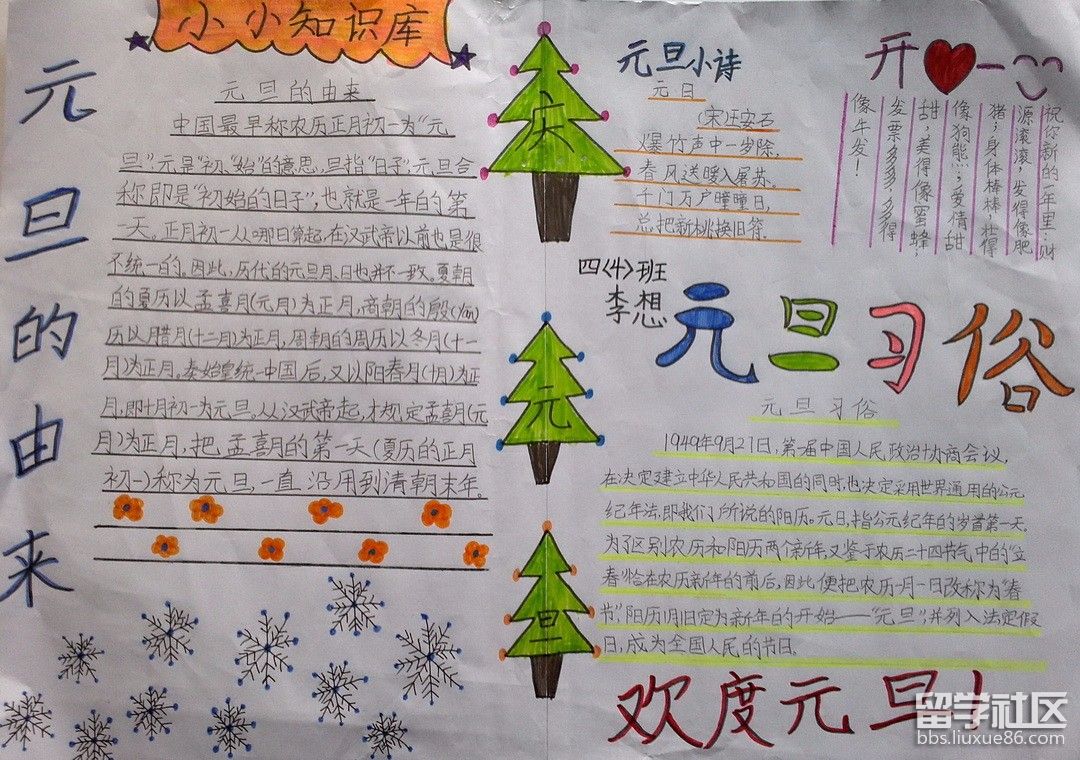 小小知识库
元旦的由来
元旦的由来
中国最早称农历正月初一为“元
旦”元是“初”“始”的意思,旦指“日子”,元旦合
称即是“初始的日子”,也就是一年的第
一天。正月初一从哪日算起,在汉武帝以前也是很
不统一的。因此,历代的元旦月、日也并不一致。夏朝
的夏历以孟喜月(元月)为正月,商朝的殷(yan)
历以腊月(十二月)为正月,周朝的周历以冬月(十一
月)为正月。秦始皇统一中国后,又以阳春月(十月)为正
月,即十月初一为元旦。从汉武帝起,才规定孟喜月(元
月)为正月,把孟喜月的第一天(夏历的正月
初一)称为元旦,一直沿用到清朝末年。
庆
元
旦
元旦小诗
元日
(宋)王安石
爆竹声中一岁除,
春风送暖入屠苏。
千门万户曈曈日,
总把新桃换旧符。
开一
祝你新的一年里:财
源滚滚,发得像肥
猪;身体棒棒,壮得
像狗熊;爱情甜
甜,美得像蜜蜂,
发票多多,多得
像牛发!
四〈4〉班
李想
元旦习俗
元旦习俗
1949年9月27日,第一届中国人民政治协商会议,
在决定建立中华人民共和国的同时,也决定采用世界通用的公元
纪年法,即我们所说的阳历。元旦,指公元纪年的岁首第一天。
为了区别农历和阳历两个新年,又鉴于农历二十四节气中的“立
春”恰在农历新年的前后,因此便把农历一月一日改称为“春
节”,阳历1月1日定为新年的开始——“元旦”,并列入法定假
日,成为全国人民的节日.
欢度元旦!
留学社区
bbs.liuxue86.com